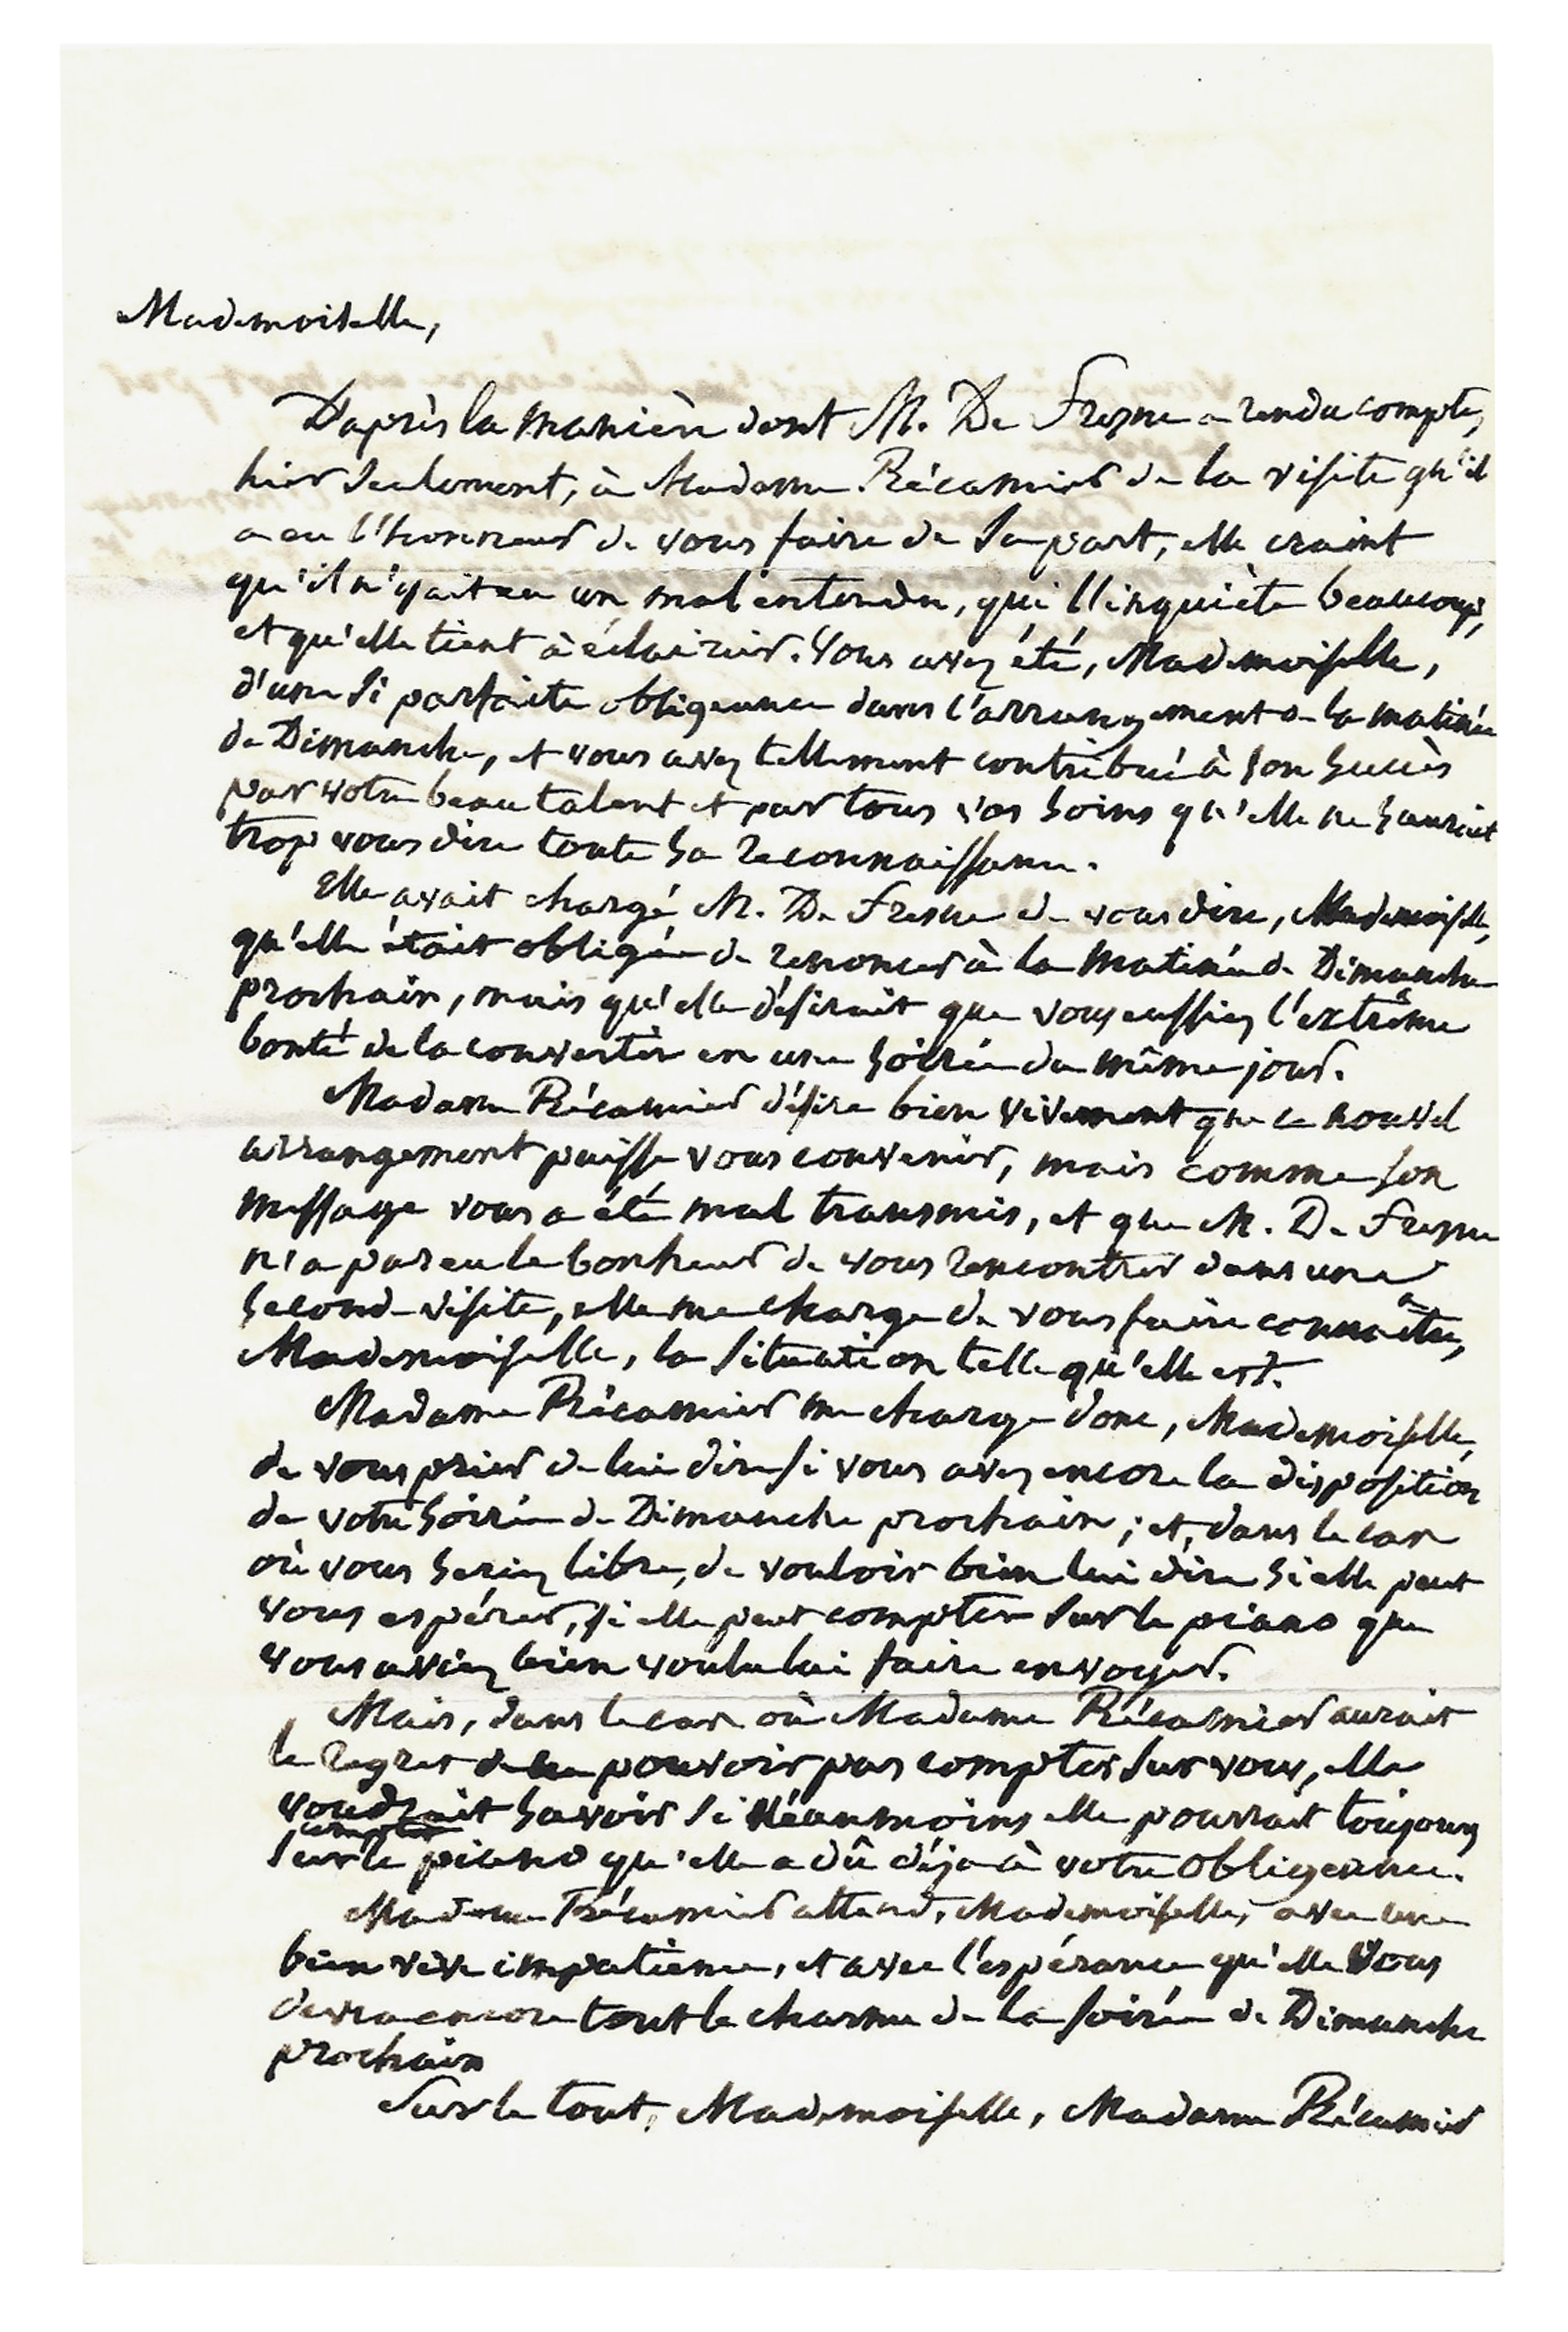 Mademoiselle,
D'après la manière dont M. De Fresne a rendu compte,
hier seulement, à Madame Récamier de la visite qu'il
a eu l'honneur de vous faire de sa part, elle craint
qu'il n'y ait eu un mal entendu, qui l'inquiète beaucoup,
et qu'elle tient à éclaircir. Vous avez été, Mademoiselle,
d'une si parfaite obligeance dans l'arrangement de la matinée
de Dimanche, et vous avez tellement contribué à son succès
par votre beau talent et par tous vos soins qu'elle ne sauroit
trop vous dire toute sa reconnaissance.
Elle avait chargé M. De Fresne de vous dire, Mademoiselle,
qu'elle était obligée de renoncer à la matinée de Dimanche
prochain, mais qu'elle désirait que vous eussiez l'extrême
bonté de la convertir en une soirée du même jour.
Madame Récamier désire bien vivement que ce nouvel
arrangement puisse vous convenir, mais comme son
message vous a été mal transmis, et que M. De Fresne
n'a pas eu le bonheur de vous rencontrer dans une
seconde visite, elle me charge de vous faire connaître,
Mademoiselle, la situation telle qu'elle est.
Madame Récamier me charge donc, Mademoiselle,
de vous prier de lui dire si vous avez encore la disposition
de votre soirée de Dimanche prochain ; et, dans le cas
où vous seriez libre, de vouloir bien lui dire si elle peut
vous espérer, si elle peut compter sur le piano que
vous aviez bien voulu lui faire envoyer.
Mais, dans le cas où Madame Récamier aurait
le regret de ne pouvoir pas compter sur vous, elle
voudrait savoir si néanmoins elle pourrait toujours
compter
sur le piano qu'elle a dû déja à votre obligeance.
Madame Récamier attend, Mademoiselle, avec une
bien vive impatience, et avec l'espérance qu'elle vous
devra encore tout le charme de la soirée de Dimanche
prochain
Sur le tout, Mademoiselle, Madame Récamier